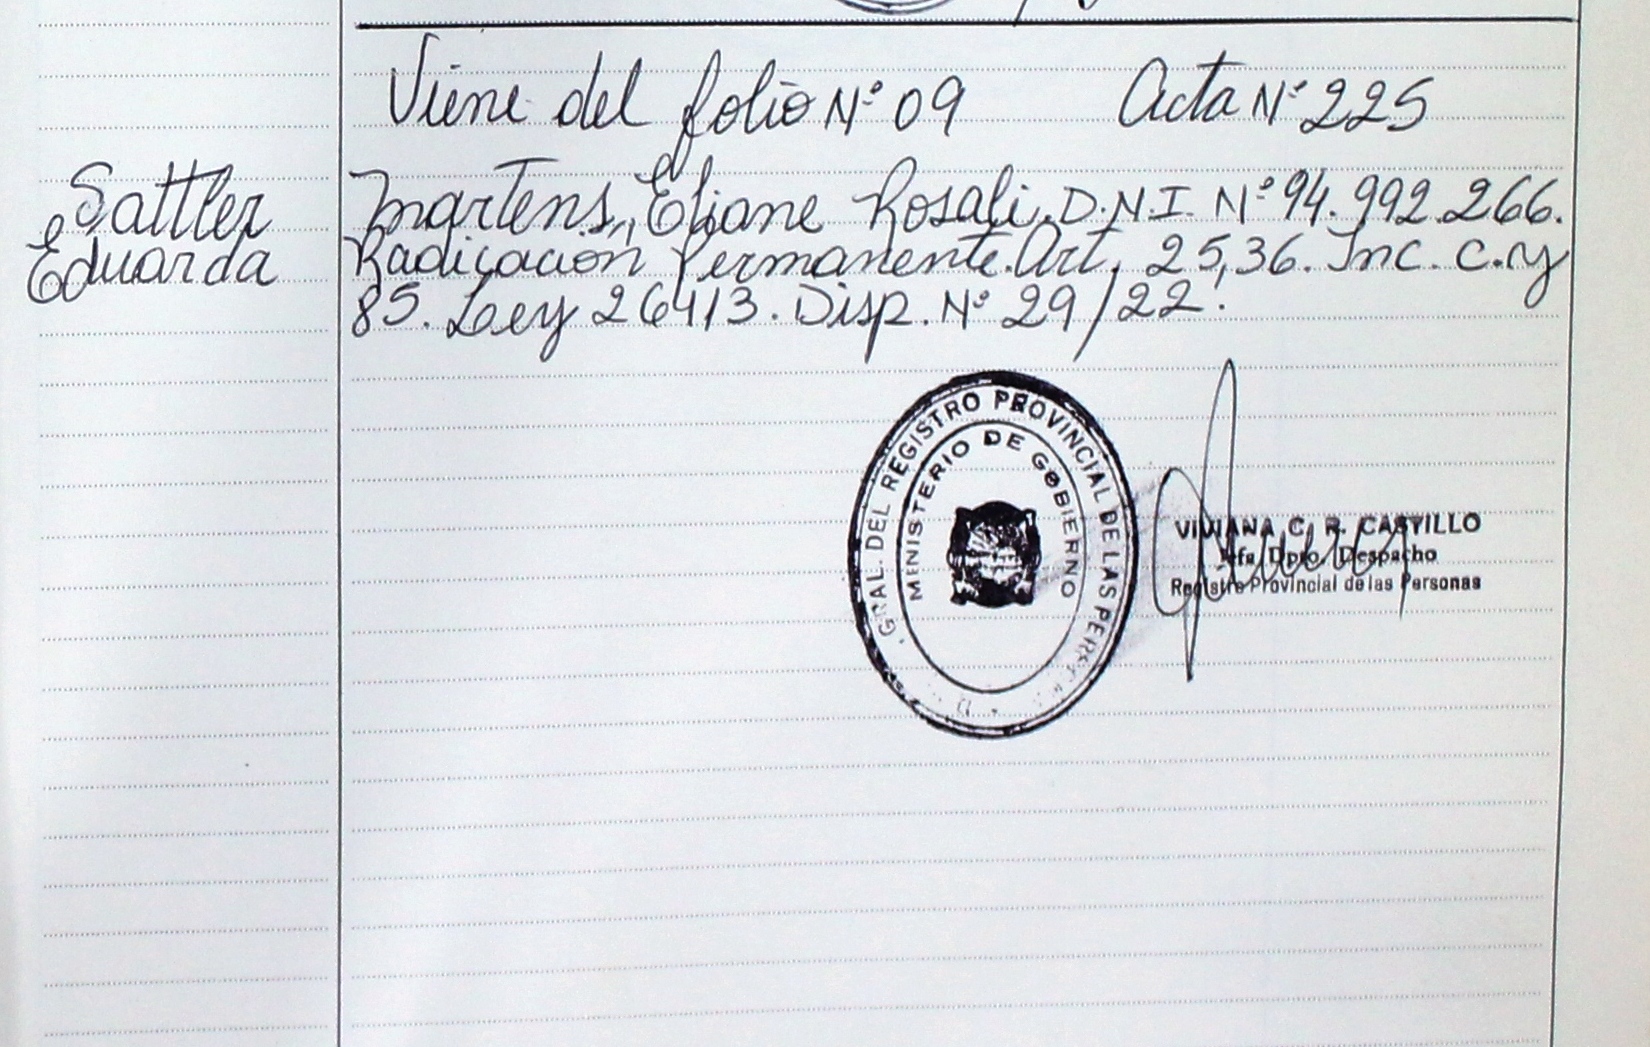 Viene del folio Nº 09 Acta Nº 225
Sattler
Eduarda
Martens, Eliane Rosali. D.N.I. Nº 94.992.266.
Radicación Permanente. Art. 25, 36. Inc. C. y
85. Ley 26413. Disp. Nº 29/22.
GRAL. DEL REGISTRO PROVINCIAL DE LAS
MINISTERIO DE GOBIERNO
VIVIANA C. R. CASTILLO
Jefa Dpto. Despacho
Registro Provincial de las Personas